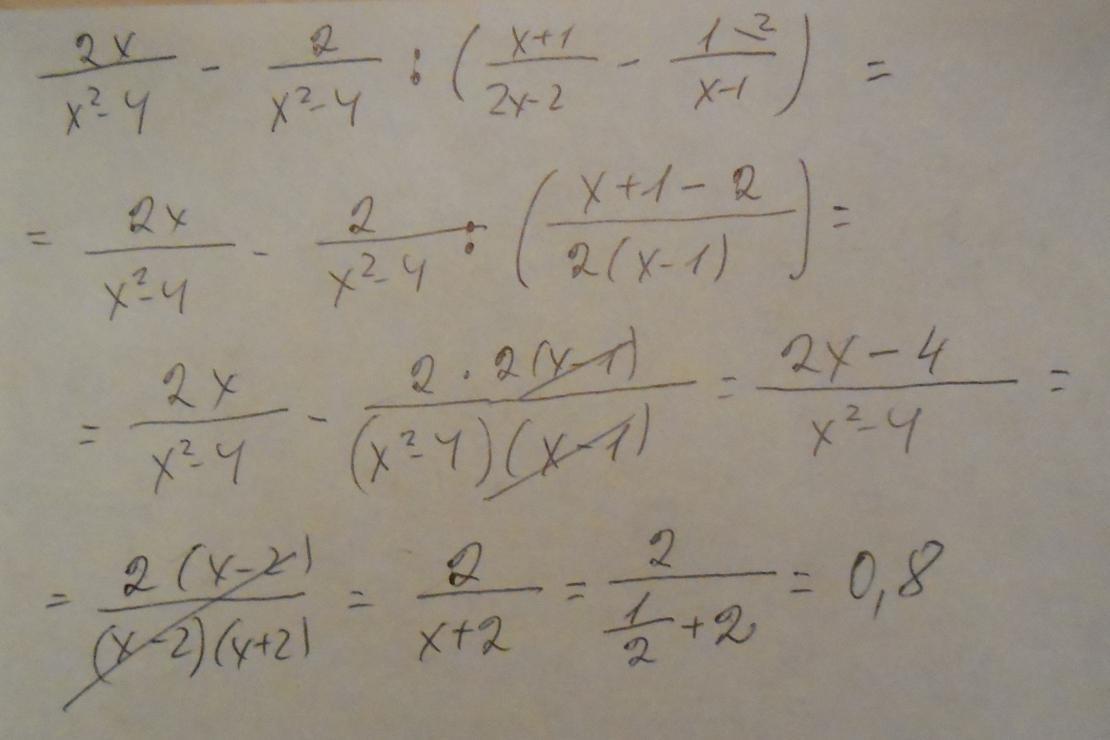 2x/(x²-4) - 2/(x²-4) : ((x+1)/(2x-2) - 1\2/(x-1)) =
= 2x/(x²-4) - 2/(x²-4) : ((x+1-2)/(2(x-1))) =
= 2x/(x²-4) - (2·2(x-1))/((x²-4)(x-1)) = (2x-4)/(x²-4) =
= (2(x-2))/((x-2)(x+2)) = 2/(x+2) = 2/(1/2+2) = 0,8